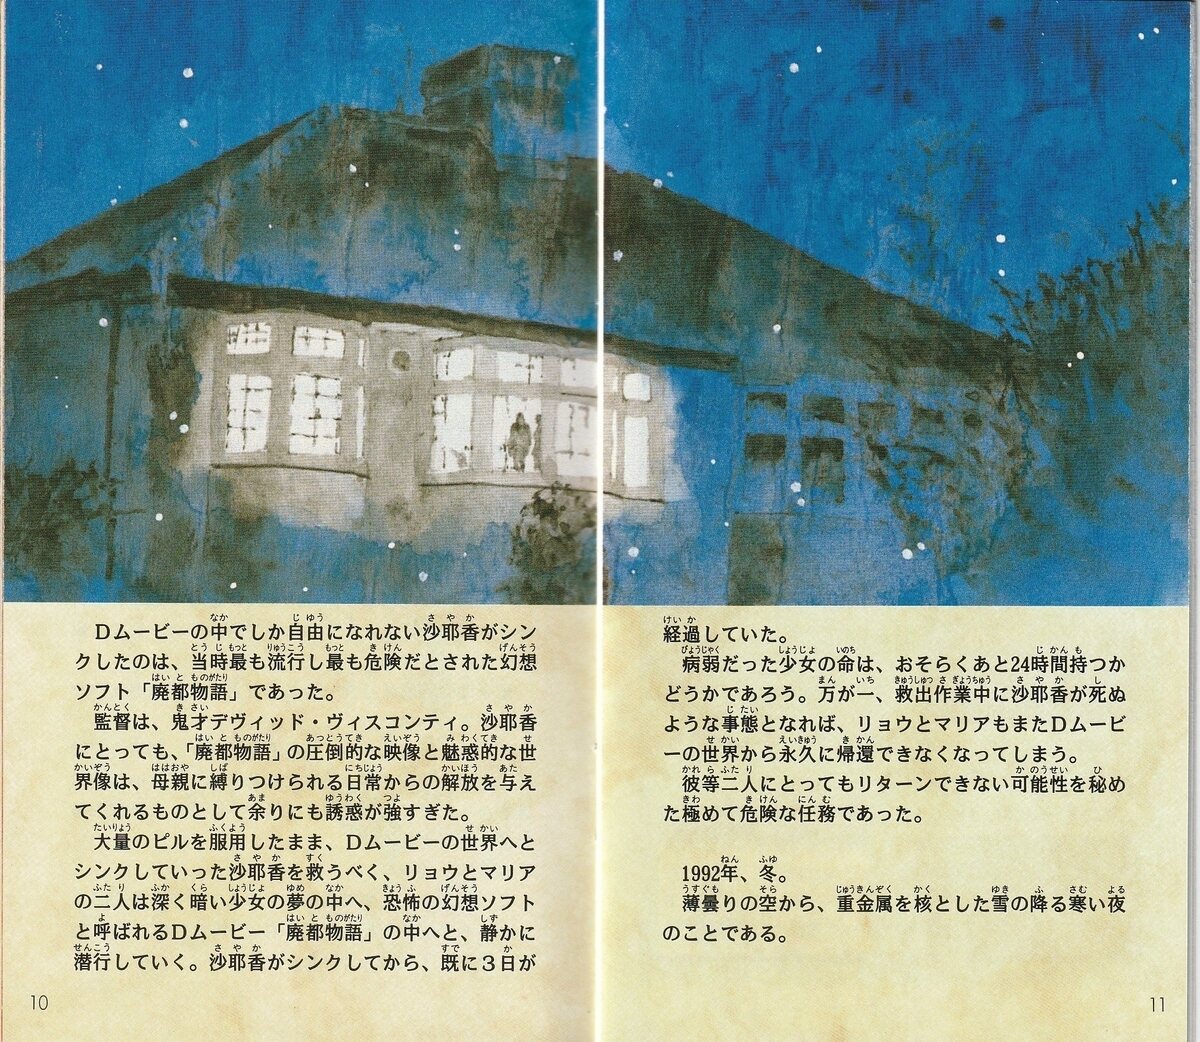 Dムービーの中でしか自由になれない沙耶香がシン
クしたのは、当時最も流行し最も危険だとされた幻想
ソフト「廃都物語」であった。
監督は、鬼才デヴィッド・ヴィスコンティ。沙耶香
にとっても、「廃都物語」の圧倒的な映像と魅惑的な世
界像は、母親に縛りつけられる日常からの解放を与え
てくれるものとして余りにも誘惑が強すぎた。
大量のピルを服用したまま、Dムービーの世界へと
シンクしていった沙耶香を救うべく、リョウとマリア
の二人は深く暗い少女の夢の中へ、恐怖の幻想ソフト
と呼ばれるDムービー「廃都物語」の中へと、静かに
潜行していく。沙耶香がシンクしてから、既に3日が
10
経過していた。
病弱だった少女の命は、おそらくあと24時間持つか
どうかであろう。万が一、救出作業中に沙耶香が死ぬ
ような事態となれば、リョウとマリアもまたDムービ
ーの世界から永久に帰還できなくなってしまう。
彼等二人にとってもリターンできない可能性を秘め
た極めて危険な任務であった。
1992年、冬。
薄曇りの空から、重金属を核とした雪の降る寒い夜
のことである。
11